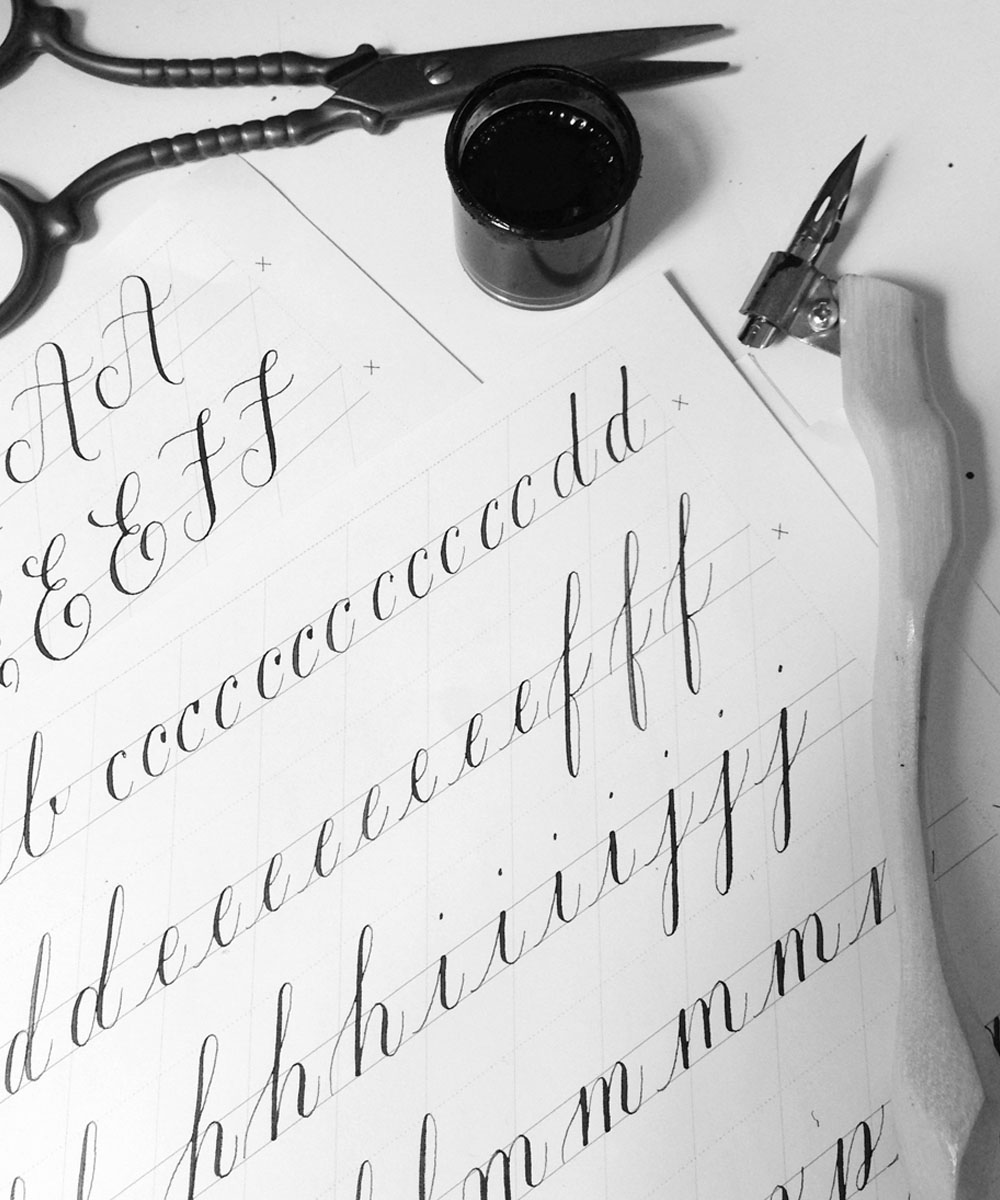 A A
E E F F
b c c c c c c c c c c c c d d
d d e e e e e e e e f f f
h h h i i i i j j j
l m m m m
p